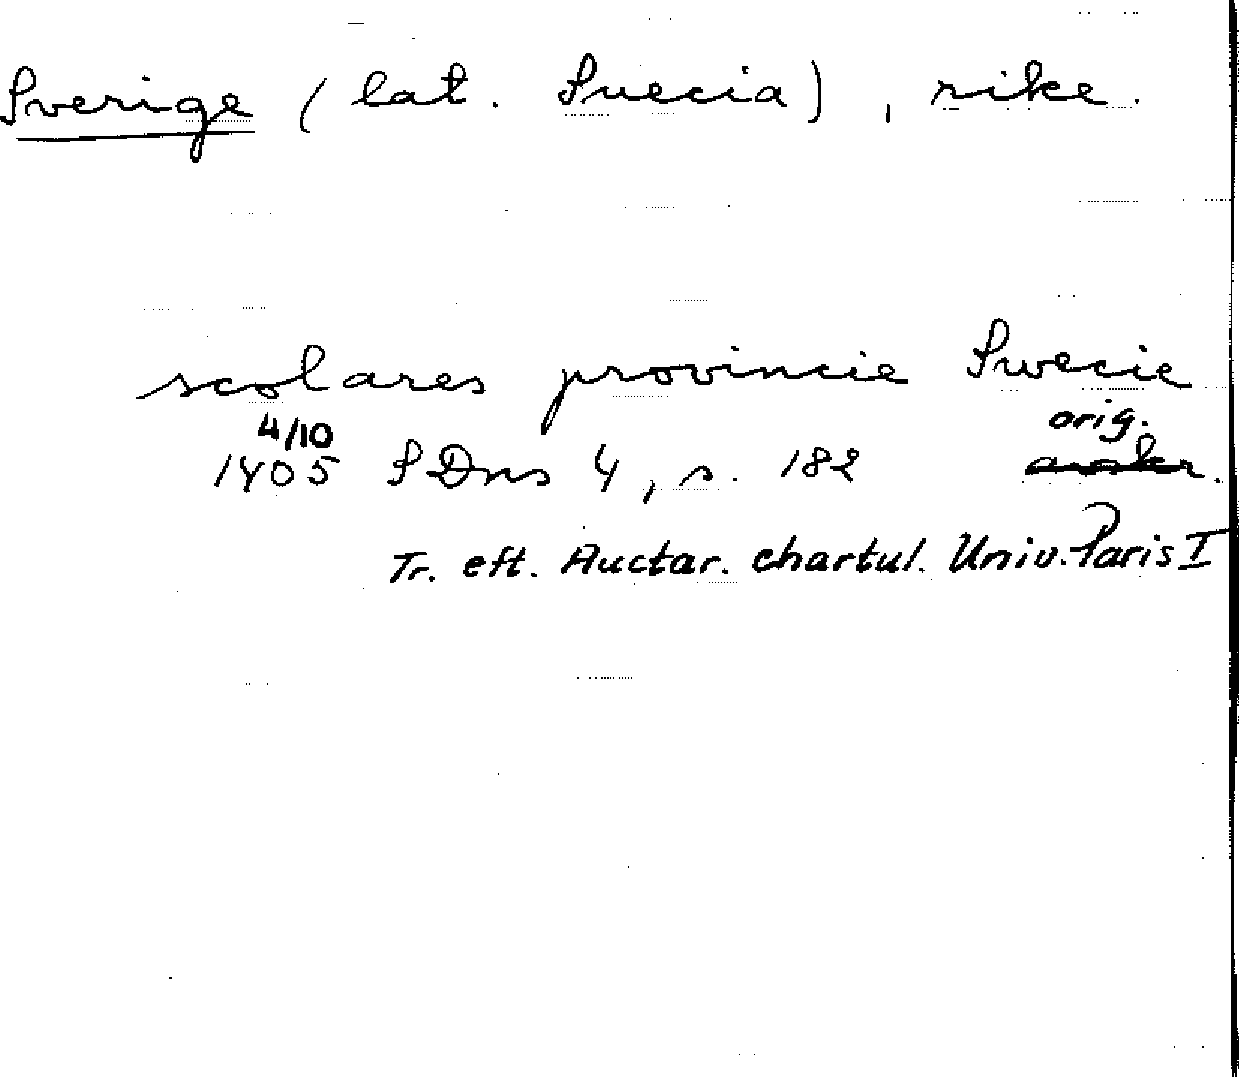 Sverige (lat. Suecia), rike.
scolares provincie Swecie
4/10 orig.
1405 SDns 4, s. 182 avskr.
Tr. eft. Auctar. chartul. Univ. Paris I